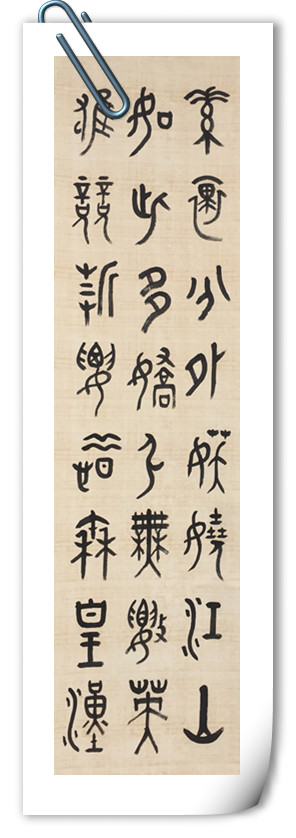 素裹分外妖嬈江山
如此多嬌引無數英
雄競折腰惜秦皇漢